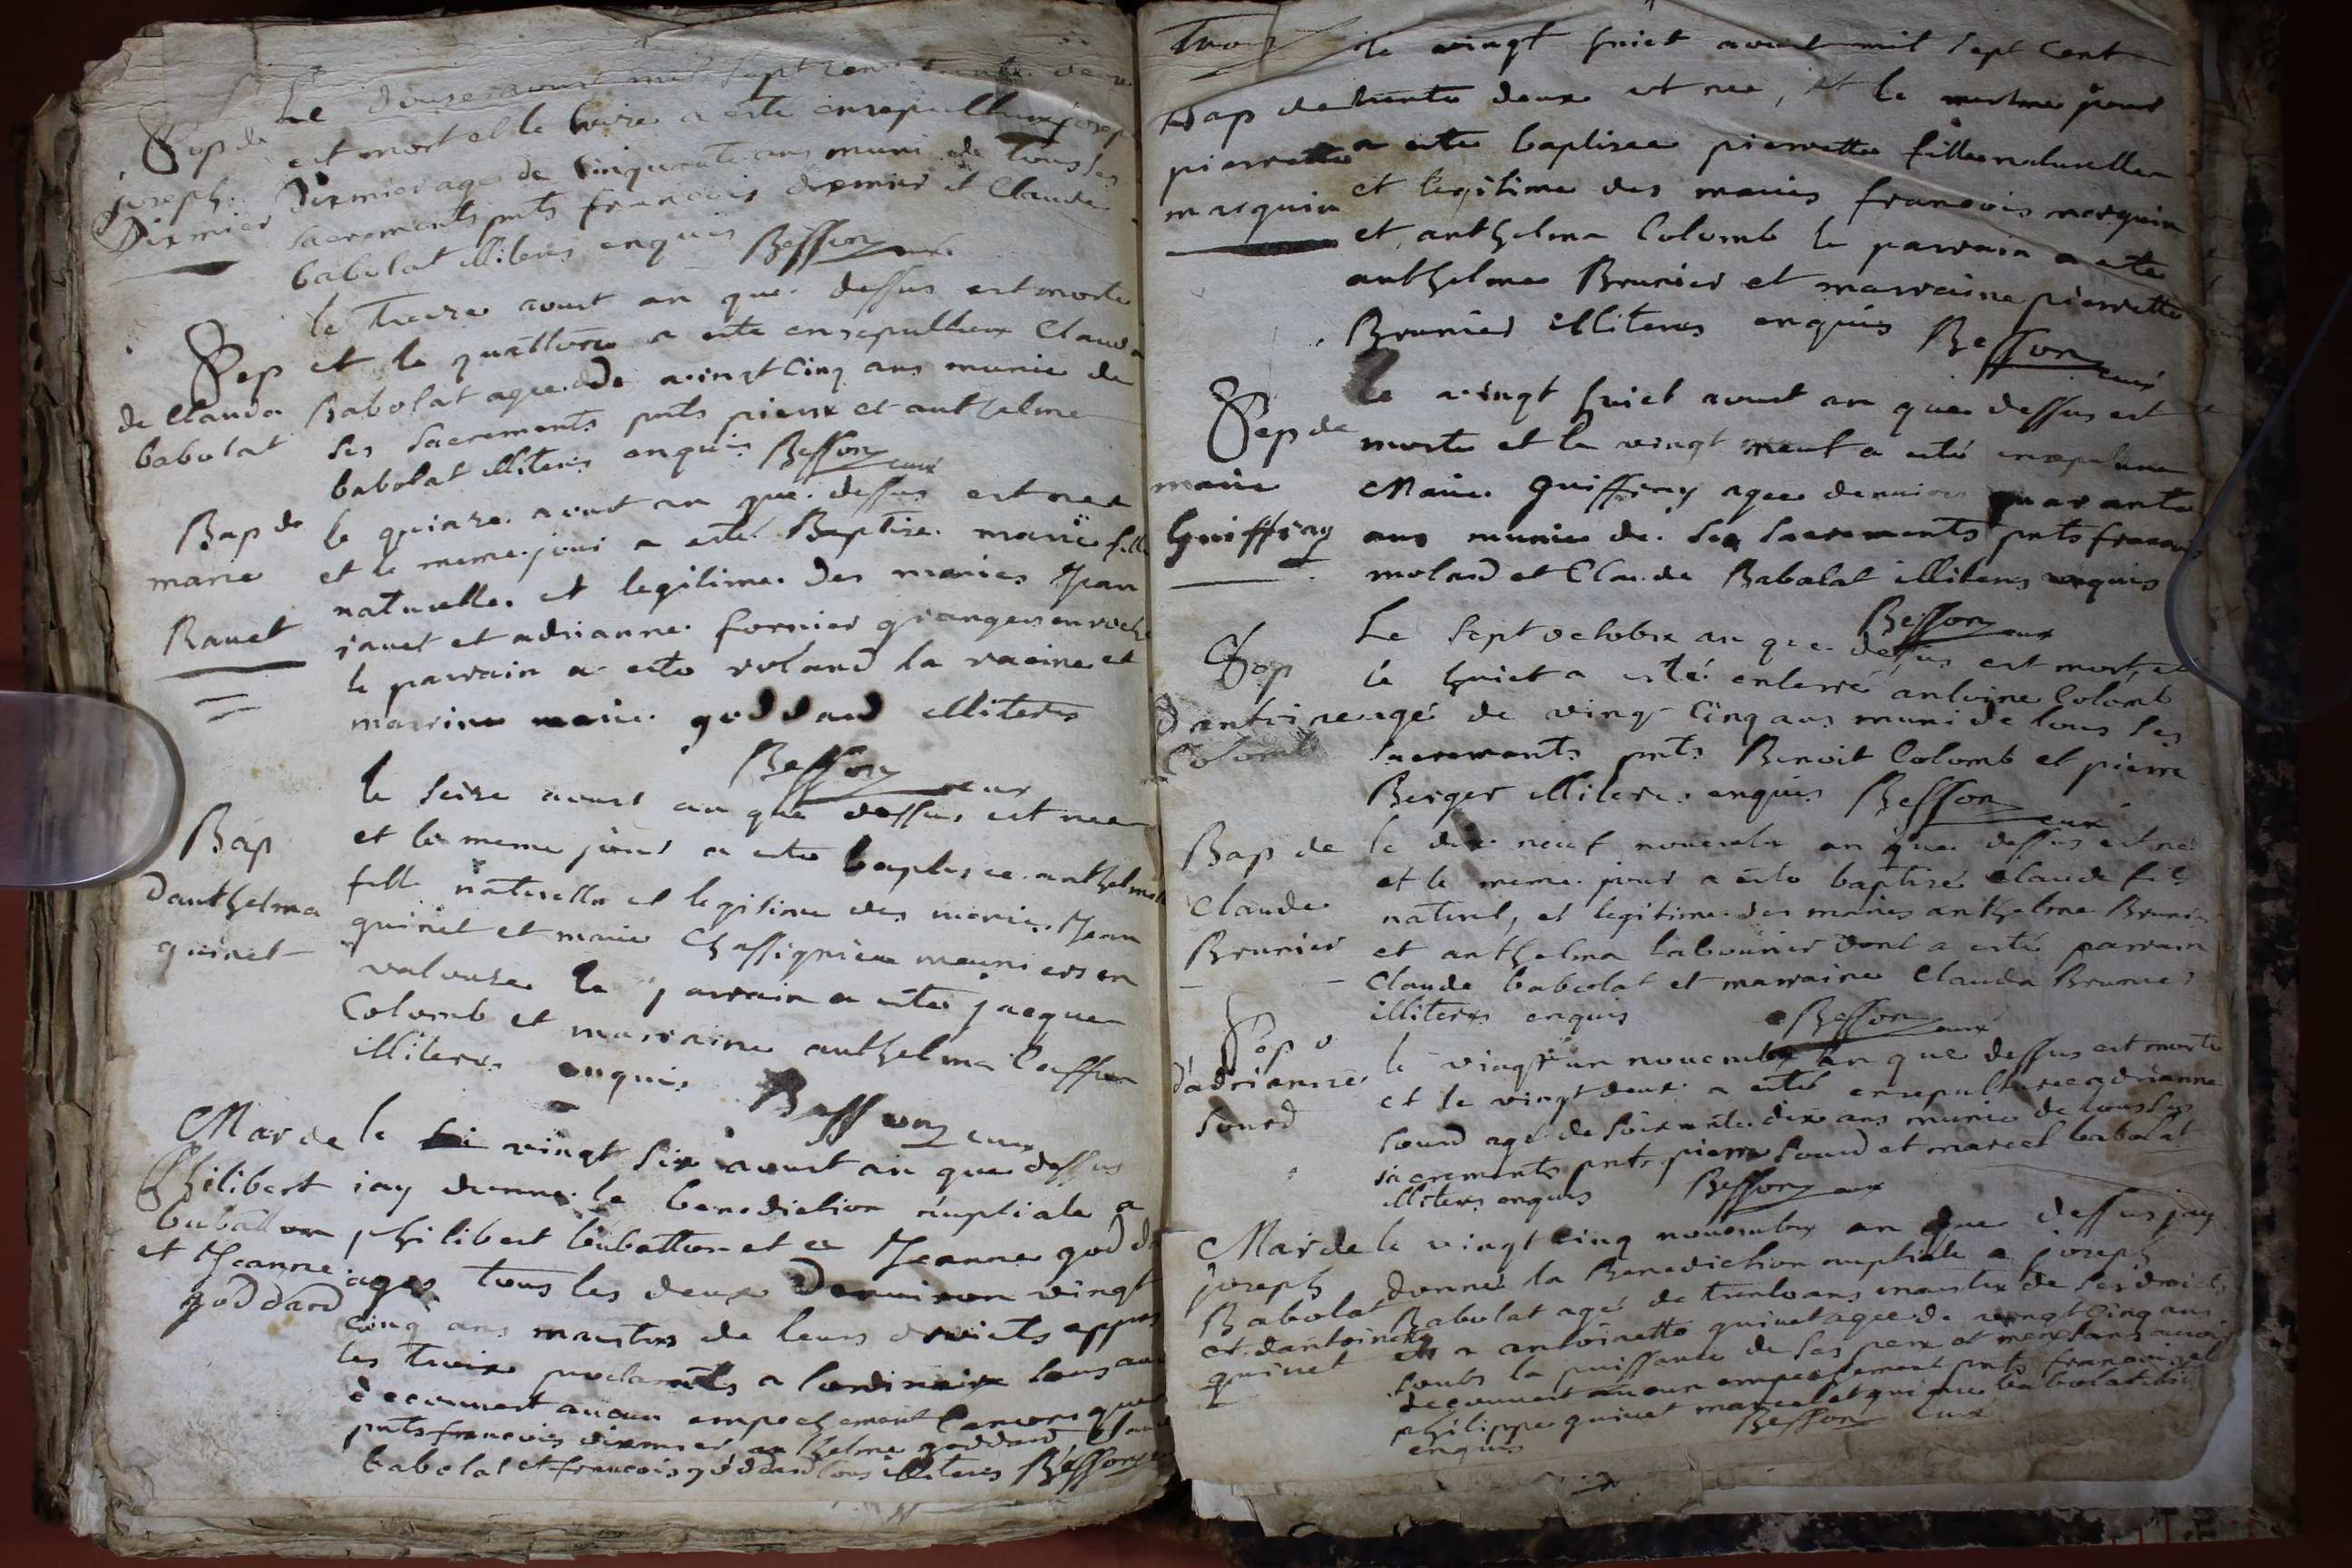 Sep de
joseph
Dixmier
Le douse aoust mil sept cent trente deux
est mort et le treize a este ensepulturé joseph
Dixmier age de cinquante ans muni de tous ses
sacrements pnts francois dixmier et Claude
babolat illiteres enquis Besson curé
Sep
de Clauda
babolat
le treize aoust an que dessus est morte
et le quattorze a este ensepulturee Clauda
Babolat agee de vingt cinq ans munie de
ses sacrements pnts pierre et anthelme
babolat illiteres enquis Besson curé
Bap de
marie
Ravet
le quinze aoust an que dessus est nee
et le meme jour a esté Baptise marie fille
naturelle et legitime des maries Jean
ravet et adrianne fornier grangers en roche
le parrain a este roland la racine et
marrine marie goddard illiteres
Besson cur
Bap
danthelma
quinet
le seize aoust an que dessus est nee
et le meme jour a este baptisee anthelma
fille naturelle et legitime des maries Jean
quinet et marie Chassignieux meuniers en
valouse le parrain a este jacque
Colomb et marraine anthelma
illiteres enquis
Besson curé
Mar de
Philibert
bubatton
et Jeanne
goddard
le vingt six aoust an que dessus
jay donne la benediction nuptiale a
philibert bubatton et a Jeanne godd
ages tous les deux denviron vingt
cinq ans maistres de leurs droicts appres
les troix proclamats a lordinaire sans
decouvert aucun empechement
pnts francois dixmier anthelme goddard
babolat et francois goddard tous illiteres Besson
Bap de
pierrette
marquin
le vingt huict aoust mil sept cent
trente deux est nee, et le mesme jour
a este baptisee pierrette fille naturelle
et legitime des maries francois marquin
et anthelma Colomb le parrain a este
anthelme Brunier et marraine pierrette
Brunier illiteres enquis Besson curé
Sep de
marie
Guiffray
le vingt huict aoust an que dessus est
morte et le vingt neuf a esté ensepulturee
Marie Guiffray agee denviron quarante
ans munie de ses sacrements pnts francois
molard et Claude Babolat illiteres enquis
Besson curé
Sep
dantoine
Colomb
Le sept octobre an que dessus est mort, et
le huict a esté enterré antoine Colomb
agé de vingt cinq ans muni de tous ses
sacremants pnts Benoit Colomb et pierre
Berger illitere enquis Besson curé
Bap de
Claude
Brunier
le dix neuf novembre an que dessus est né
et le meme jour a esto baptizé Claude fils
naturel, et legitime des maries anthelme Brunier
et anthelma labourier dont a esté parrain
Claude babolat et marraine Clauda Brunier
illiteres enquis Besson curé
Sep
dadrianne
sourd
le vingt un novembre an que dessus est morte
et le vingt deux a esté ensepulturee adrianne
sourd agé de soixante dix ans munie de tous ses
sacrements pnts pierre sourd et marcel babolat
illiteres enquis Besson curé
Mar de
joseph
Babolat
et dantoinette
quinet
le vingt cinq novembre an que dessus jay
donné la Benediction nuptiale a joseph
Babolat agé de trente ans maistre de ses droicts
et a antoinette quinet agee de vingt cinq ans
soubs la puissance de ses pere et mere sans avoir
decouvert aucun empechement pnts francois et
philippe quinet marcel et babolat
enquis Besson curé